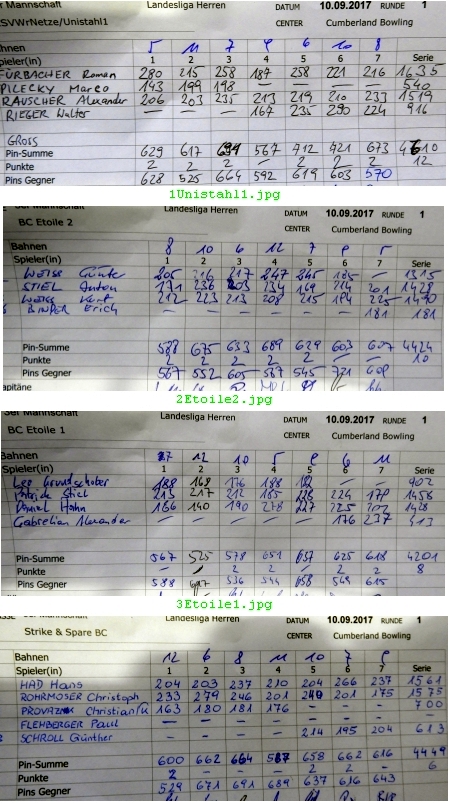 er Mannschaft Landesliga Herren DATUM 10.09.2017 RUNDE 1
SVWrNetze/Unistahl1 CENTER Cumberland Bowling
ahnen 5 11 7 9 6 10 8
pieler(in) 1 2 3 4 5 6 7 Serie
FÜRBACHER Roman 280 215 258 187 258 221 216 1635
PILECKY Marco 143 199 198 — — — — 540
RAUSCHER Alexander 206 203 235 213 219 210 233 1519
RIEGER Walter — — — 167 235 290 224 916
GROSS
Pin-Summe 629 617 691 567 712 721 673 4610
Punkte 2 2 2 — 2 2 2 12
Pins Gegner 628 525 664 592 619 603 570
1Unistahl1.jpg
Landesliga Herren DATUM 10.09.2017 RUNDE 1
BC Etoile 2 CENTER Cumberland Bowling
Bahnen 8 10 6 12 7 9 5
Spieler(in) 1 2 3 4 5 6 7 Serie
WEISS Günter 205 216 217 247 245 185 — 1315
STIEL Anton 171 236 203 234 169 214 201 1428
WEISS Kurt 212 223 213 208 215 194 225 1490
BINDER Erich — — — — — — 181 181
Pin-Summe 588 675 633 689 629 603 607 4424
Punkte 2 2 2 2 2 — — 10
Pins Gegner 567 552 605 587 545 721 608
apitäne
2Etoile2.jpg
Landesliga Herren DATUM 10.09.2017 RUNDE 1
BC Etoile 1 CENTER Cumberland Bowling
Bahnen 7 12 10 8 5 6 11
Spieler(in) 1 2 3 4 5 6 7 Serie
Leo Grundschober 188 168 176 188 182 — — 902
Patrick Stiel 213 217 212 185 228 224 179 1458
Daniel Hahn 166 140 190 278 227 225 202 1428
Gabrelian Alexander — — — — — 176 237 413
Pin-Summe 567 525 578 651 637 625 618 4201
Punkte — — 2 2 — 2 2 8
Pins Gegner 588 617 536 544 658 569 615
3Etoile1.jpg
Landesliga Herren DATUM 10.09.2017 RUNDE 1
Strike & Spare BC CENTER Cumberland Bowling
Bahnen 12 6 8 11 10 7 9
Spieler(in) 1 2 3 4 5 6 7 Serie
HAD Hans 204 203 237 210 204 266 237 1561
ROHRMOSER Christoph 233 279 246 201 240 201 175 1575
PROVAZNIK Christian 163 180 181 176 — — — 700
FLEHBERGER Paul — — — — — — —
SCHROLL Günther — — — — 214 195 204 613
Pin-Summe 600 662 664 587 658 662 616 4449
Punkte 2 — — — 2 2 — 6
Pins Gegner 529 671 691 689 637 616 643